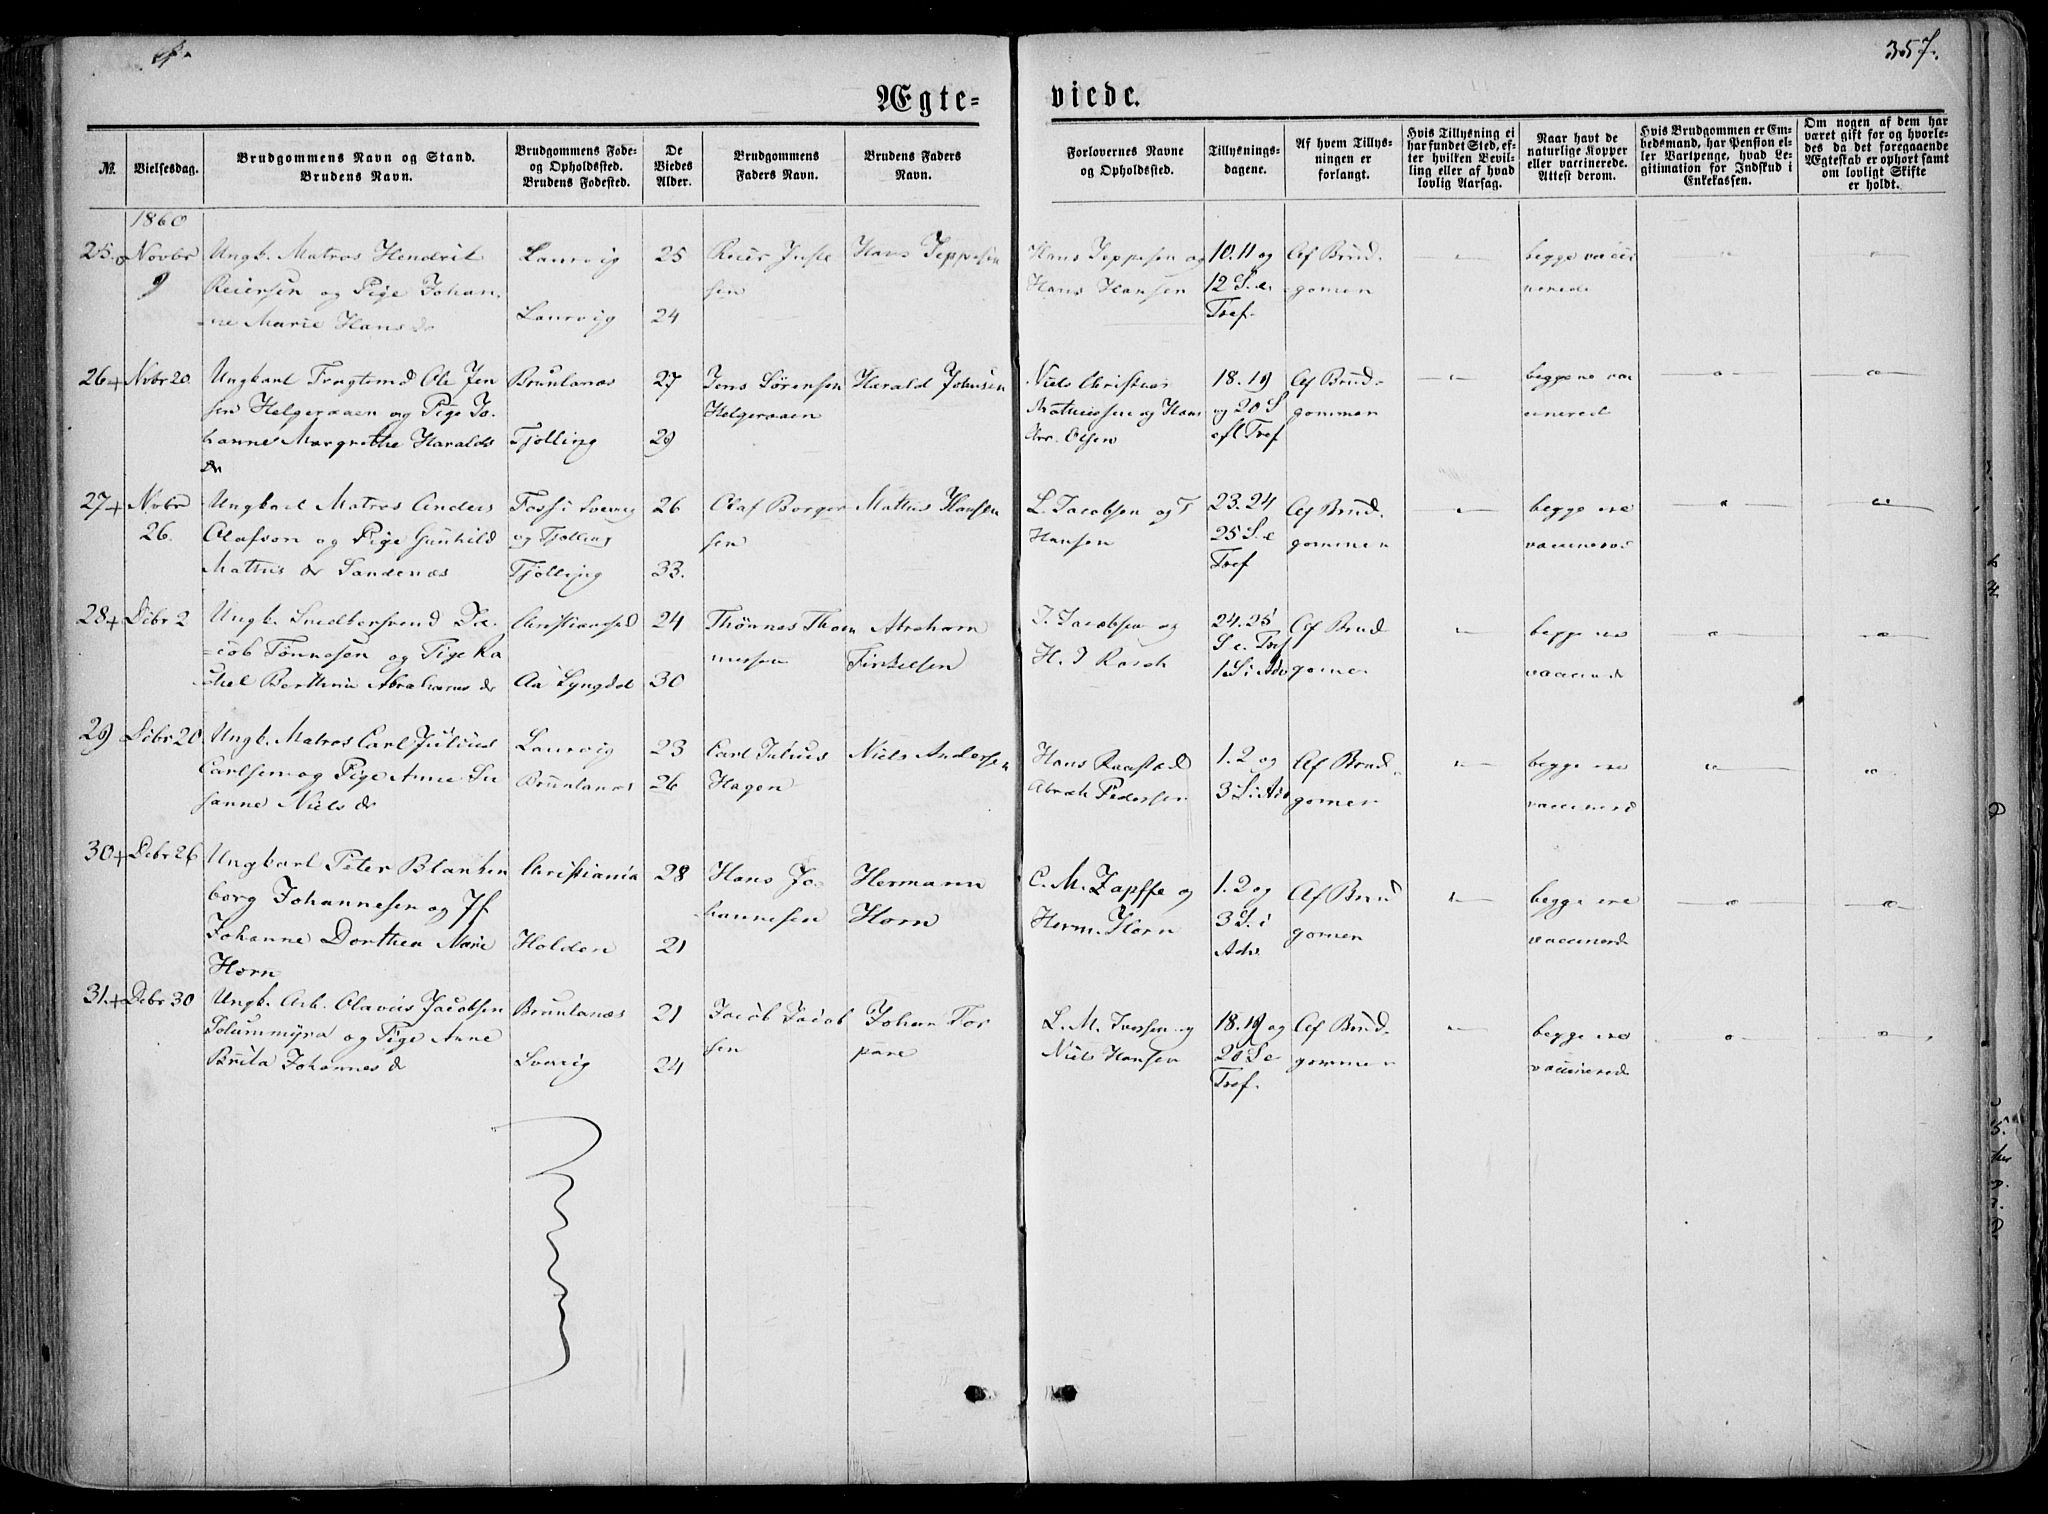 357.
Ægte=
viede.
№.
Vielsesdag.
Brudgommens Navn og Stand.
Brudens Navn.
Brudgommens Føde-
og Opholdssted.
Brudens Fødested.
De
Viedes
Alder.
Brudgommens
Faders Navn.
Brudens Faders
Navn.
Forlovernes Navne
og Opholdssted.
Tillysnings-
dagene.
Af hvem Tillys-
ningen er
forlangt.
Hvis Tillysning ei
har fundet Sted, ef-
ter hvilken Bevil-
ling eller af hvad
lovlig Aarsag.
Naar havt de
naturlige Kopper
eller vaccinerede.
Attest derom.
Hvis Brudgommen er Em-
bedsmand, har Pension el-
ler Vartpenge, hvad Le-
gitimation for Indskud i
Enkekassen.
Om nogen af dem har
været gift før og hvorle-
des da det foregaaende
Ægteskab er ophørt samt
om lovligt Skifte
er holdt.
1860
25. Novbr 9
Ungk. Matros Hendrik
Reiersen og Pige Johan-
ne Marie Hans dr
Laurvig
Laurvig
25
24
Reier Juste
sen
Hans Jeppesen
Hans Jeppesen og
Hans Hansen
10. 11 og
12 S. e.
Tref.
Af Brud-
gomen
begge vacci
nerede
26 + Nvbr 20.
Ungkarl Fragtemd Ole Jen
sen Helgeraaen og Pige Jo-
hanne Margrethe Haralds
dr
Brunlanæs
Tjølling
27
29
Jens Sørensen
Helgeraaen
Harald Johnsen
Niels Christian
Mathissen og Hans
Olsen
18. 19
og 20 S
eft Tref
Af Brud-
gommen
27 + Nvbr
26.
Ungkarl Matros Anders
Olafsen og Pige Gunhild
Mattis dr Sandenæs
og Tjølling
Tjølling
26
33.
Olaf Borger
sen
Mattis Hansen
L. Jacobsen og T
Hansen
23. 24
25 S. e
Tref
Af Brud-
gommen
begge ere
vaccinered
28 + Debr 2
Ungk. Smedkersvend Ja-
cob Tønnesen og Pige Ra
chel Berthine Abrahams dr
Christianssd
Aa Lyngdal
24
30
Thønnes Thom
messen
Abraham
Tinkelsen
J. Jacobsen og
H. J Rasch
24. 25
S. e. Tref
1 S. i Adv
Af Brud
gomen
begge ere
29 Debr 20.
Ungk. Matros Carl Julius
Carlsen og Pige Anne Su
sanne Niels dr
Laurvig
Brunlanæs
23
26
Carl Julius
Hagen
Niels Andersen
Hans Raastad
Abrah Pedersen
1. 2 og
3 S. i Adv
Af Brud-
gomen
begge ere
vaccinered
30 + Debr 26
Ungkarl Peter Blanken
borg Johannesen og Jf
Johanne Dorthea Marie
Horn
Christiania
Holden
28
21
Hans Jo-
hannesen
Hermann
Horn
C. M. Zapffe og
Herm. Horn
1. 2 og
3 S. i
Adv.
Af Brud
gomen
begge ere
vaccinerede
31. + Debr 30
Ungk. Arb. Olavus Jacobsen
Solummyra og Pige Anne
Brita Johannes dr
Brunlanæs
Sverig
21
24
Jacob Jacob
sen
Johan Tor
L. M. Iversen og
Niels Hansen
18. 19 og
20 S. e
Tref.
Af Brud-
gommen
begge ere
vaccinerede